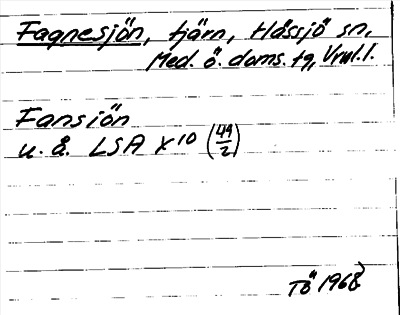 Fagnesjön, tjärn, Hässjö sn,
Med. ö. doms. tg, Vrml.l.
Fansjön
u. å. LSA X10 (49/2)
Tö 1968